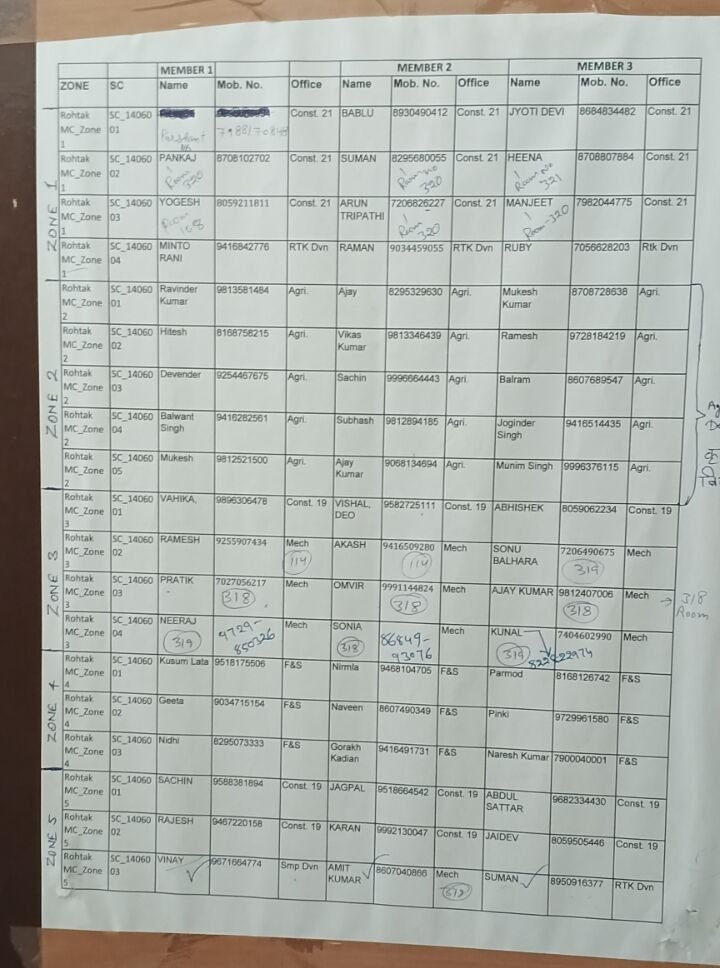 MEMBER 1 MEMBER 2 MEMBER 3
ZONE SC Name Mob. No. Office Name Mob. No. Office Name Mob. No. Office
ZONE 1
Rohtak MC_Zone 1 SC_14060 01 Const. 21 BABLU 8930490412 Const. 21 JYOTI DEVI 8684834482 Const. 21
Rohtak MC_Zone 1 SC_14060 02 PANKAJ 8708102702 Const. 21 SUMAN 8295680055 Const. 21 HEENA 8708807884 Const. 21
Room 320 Room no 320 Room No 321
Rohtak MC_Zone 1 SC_14060 03 YOGESH 8059211811 Const. 21 ARUN TRIPATHI 7206826227 Const. 21 MANJEET 7982044775 Const. 21
Room 320 Room-320
Rohtak MC_Zone 1 SC_14060 04 MINTO RANI 9416842776 RTK Dvn RAMAN 9034459055 RTK Dvn RUBY 7056628203 Rtk Dvn
ZONE 2
Rohtak MC_Zone 2 SC_14060 01 Ravinder Kumar 9813581484 Agri. Ajay 8295329630 Agri. Mukesh Kumar 8708728638 Agri.
Rohtak MC_Zone 2 SC_14060 02 Hitesh 8168758215 Agri. Vikas Kumar 9813346439 Agri. Ramesh 9728184219 Agri.
Rohtak MC_Zone 2 SC_14060 03 Devender 9254467675 Agri. Sachin 9996664443 Agri. Balram 8607689547 Agri.
Rohtak MC_Zone 2 SC_14060 04 Balwant Singh 9416282561 Agri. Subhash 9812894185 Agri. Joginder Singh 9416514435 Agri.
Rohtak MC_Zone 2 SC_14060 05 Mukesh 9812521500 Agri. Ajay Kumar 9068134694 Agri. Munim Singh 9996376115 Agri.
ZONE 3
Rohtak MC_Zone 3 SC_14060 01 VAHIKA, 9896306478 Const. 19 VISHAL, DEO 9582725111 Const. 19 ABHISHEK 8059062234 Const. 19
Rohtak MC_Zone 3 SC_14060 02 RAMESH 9255907434 Mech AKASH 9416509280 Mech SONU BALHARA 7206490675 Mech
114 114 319
Rohtak MC_Zone 3 SC_14060 03 PRATIK 7027056217 Mech OMVIR 9991144824 Mech AJAY KUMAR 9812407006 Mech → 318 Room
318 318 318
Rohtak MC_Zone 3 SC_14060 04 NEERAJ 9729-850326 Mech SONIA 86849-93076 Mech KUNAL 7404602990 Mech
319 318 319
ZONE 4
Rohtak MC_Zone 4 SC_14060 01 Kusum Lata 9518175506 F&S Nirmla 9468104705 F&S Parmod 8168126742 F&S
Rohtak MC_Zone 4 SC_14060 02 Geeta 9034715154 F&S Naveen 8607490349 F&S Pinki 9729961580 F&S
Rohtak MC_Zone 4 SC_14060 03 Nidhi 8295073333 F&S Gorakh Kadian 9416491731 F&S Naresh Kumar 7900040001 F&S
ZONE 5
Rohtak MC_Zone 5 SC_14060 01 SACHIN 9588381894 Const. 19 JAGPAL 9518664542 Const. 19 ABDUL SATTAR 9682334430 Const. 19
Rohtak MC_Zone 5 SC_14060 02 RAJESH 9467220158 Const. 19 KARAN 9992130047 Const. 19 JAIDEV 8059505446 Const. 19
Rohtak MC_Zone 5 SC_14060 03 VINAY 9671664774 Smp Dvn AMIT KUMAR 8607040866 Mech SUMAN 8950916377 RTK Dvn